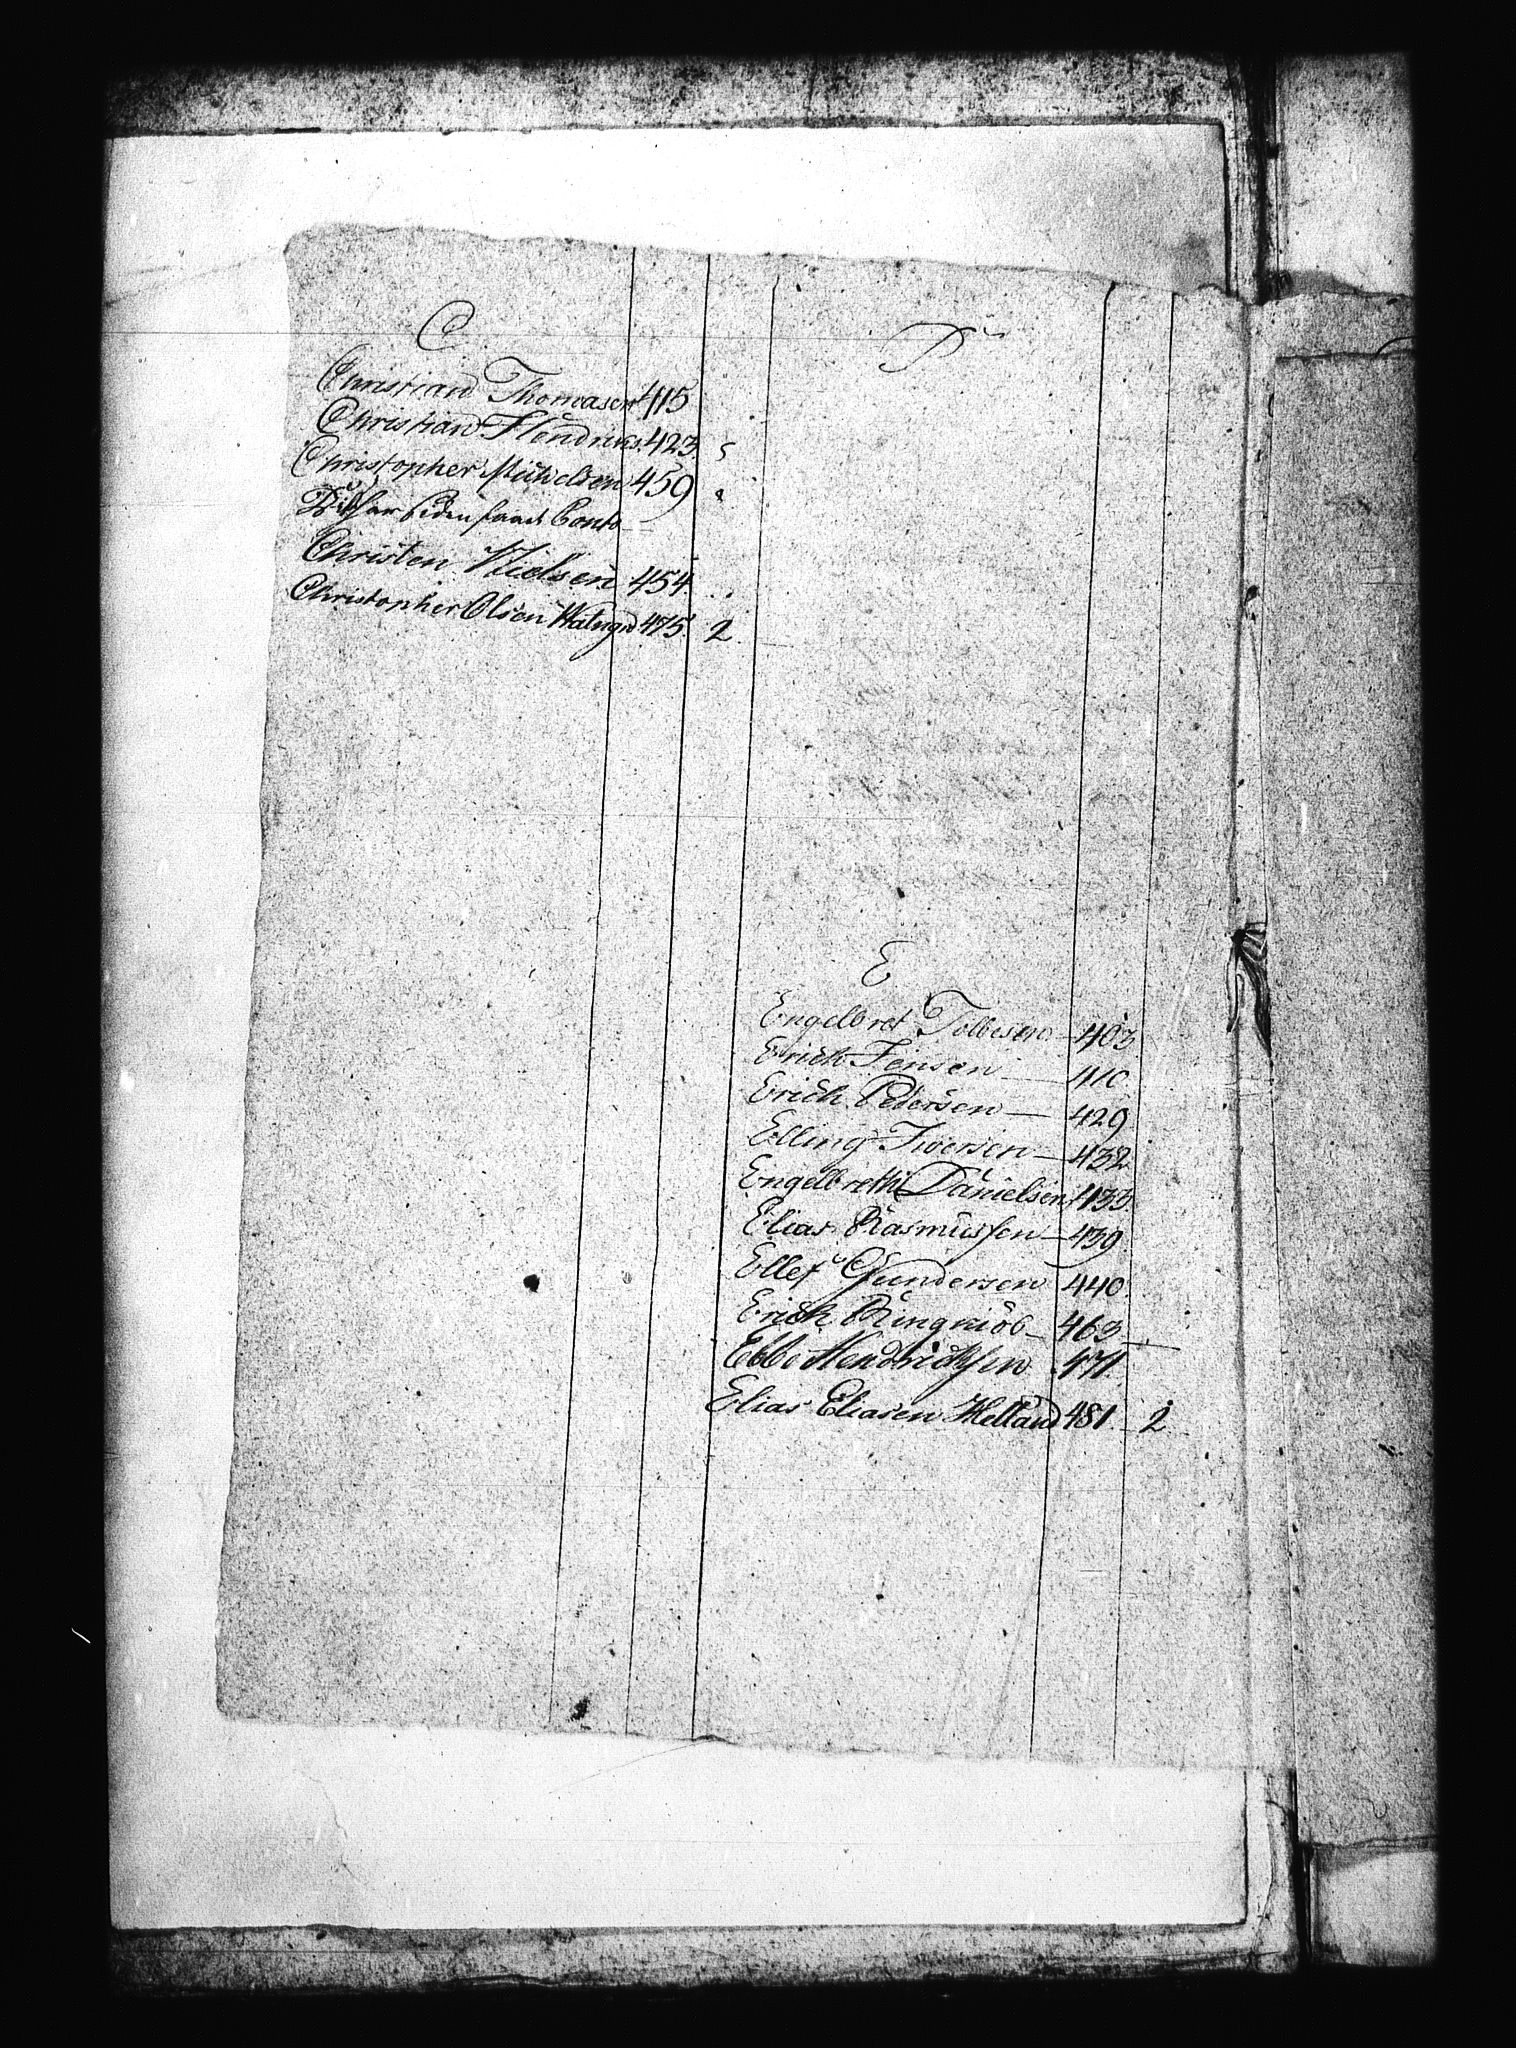 C
Christian Thomasen 415
Christian Hendrics. 423
Christopher 459
har siden faaet Conto
Christen Nielsen 454
Christopher Olsen 475. 2
D
E
Engelbret Tollesen 403
Erich Jensen 410
Erich Pedersen 429
Elling Iversen 432
Engelbreth Danielsen 433
Elias Rasmussen 439
Ellef Gundersen 440
Erich Ringriöb 463
Ebbe Hendrichsen 471
Elias Eliasen Helland 481. 2